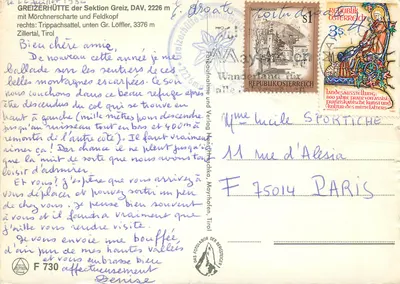 GREIZERHÜTTE der Sektion Greiz, DAV, 2226 m
mit Mörchnerscharte und Feldkopf
rechts: Trippachsattel, unten Gr. Löffler, 3376 m
Zillertal, Tirol
Bien chère amie,
De nouveau cette année je me
ballade sur les sentiers de ces
belles montagnes escarpées. Ce soir
nous couchons dans ce beau refuge après
être descendus du col qui se trouve en
haut à gauche (mille mètres pour descendre
jusqu'au ruisseau tout en bas et 400 m à
remonter de l'autre côté). Il faut vraiment
aimer ça! Par chance il ne pleut jusqu'à
que la nuit de sorte que nous avons tout
loisir d'admirer.
Et vous? J'espère que vous arrivez à
vous déplacer et pouvez sortir un peu
de chez vous. Je pense bien souvent
à vous et il faudra vraiment que
j'aille vous rendre visite.
Je vous envoie une bouffée
d'air pur de mes hautes vallées
et vous embrasse bien
affectueusement
Denise
F 730
S1
REPUBLIK ÖSTERREICH
3
Mayrhofen
Wanderbare für
alle
Mme Lucile SPORTICHE
11 rue d'Alésia
F 75014 PARIS